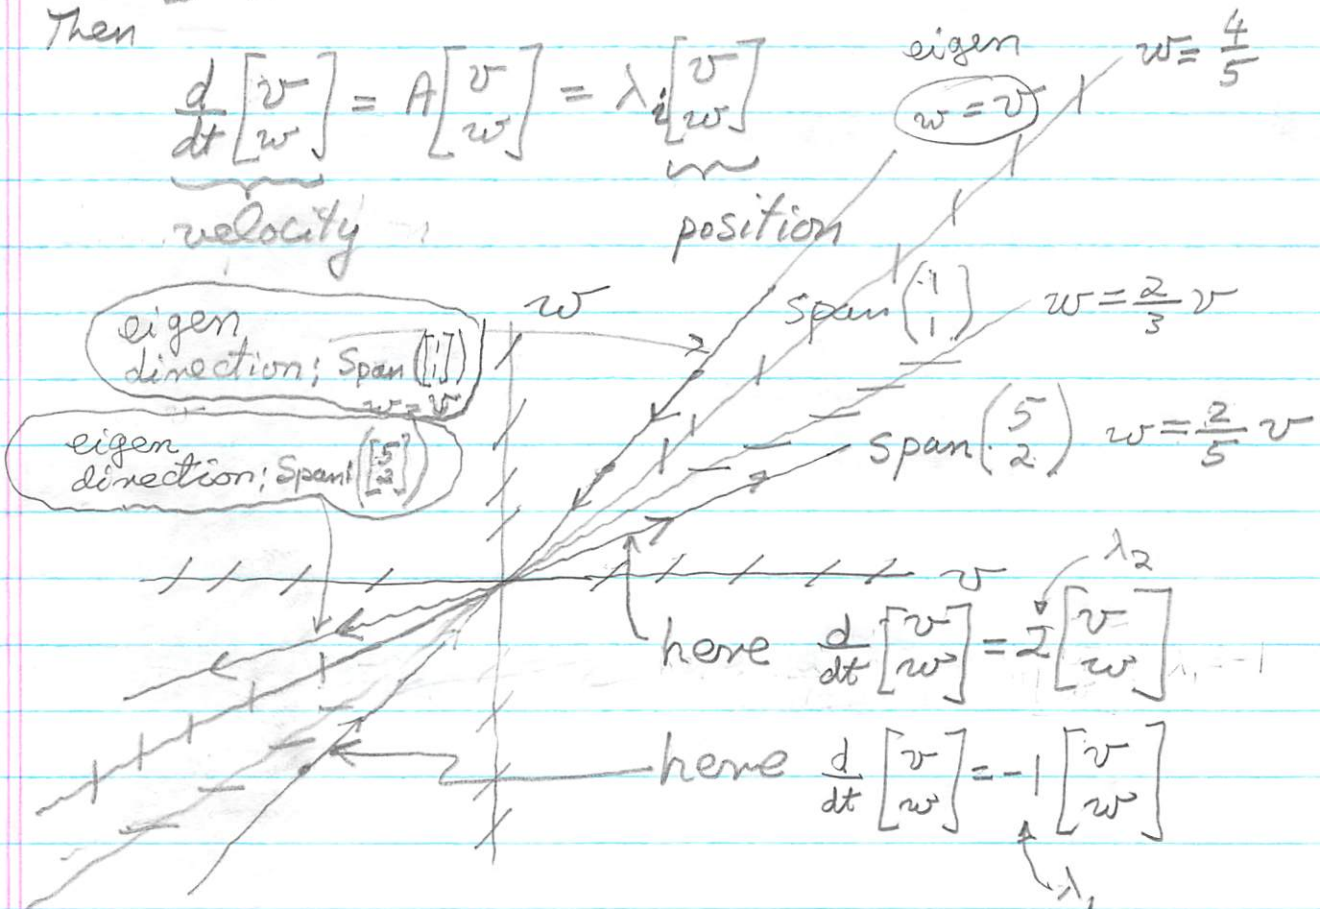 Then
d/dt [v w] = A [v w] = λi [v w]
velocity
position
eigen
w = v
w = 4/5
w
eigen
direction; Span ([1 1])
w = v
span (1 1)
w = 2/3 v
eigen
direction; Span ([5 2])
span (5 2)
w = 2/5 v
v
λ2
here d/dt [v w] = 2 [v w]
here d/dt [v w] = -1 [v w]
λ1